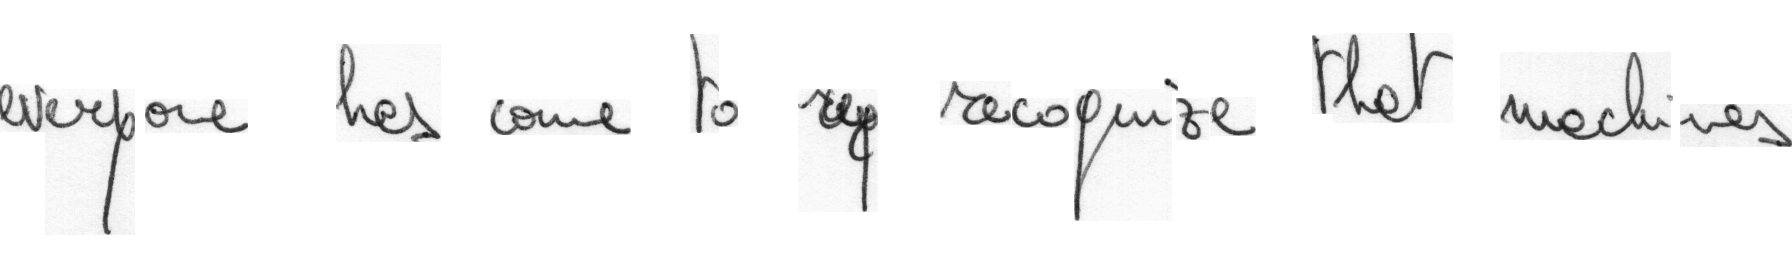 everyone has come to reg recognize that machines